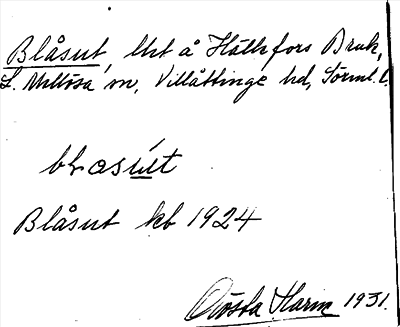 Blåsut, lht å Hälleforss Bruk,
L. Mellösa sn, Villåttinge hd, Sörml. l.
blasút
Blåsut kb 1924
Gösta Harin 1931.